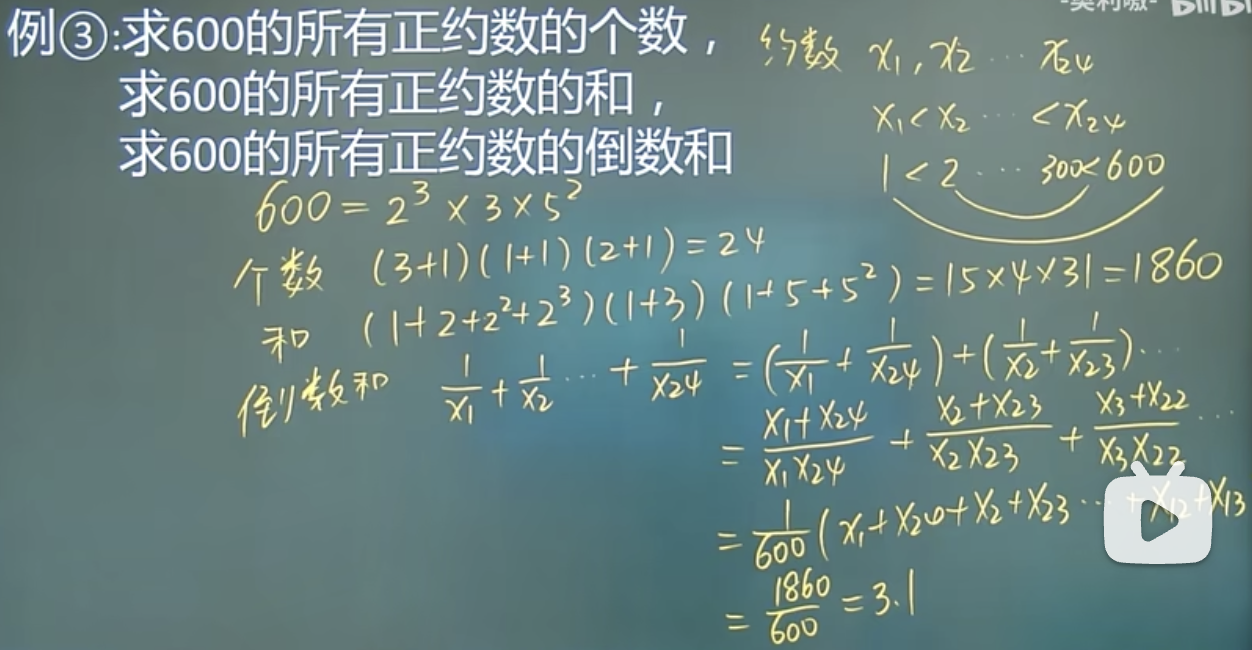 例③:求600的所有正约数的个数，
求600的所有正约数的和，
求600的所有正约数的倒数和
约数 x₁, x₂ ⋯ x₂₄
x₁ < x₂ ⋯ < x₂₄
1 < 2 ⋯ 300 < 600
600 = 2³ × 3 × 5²
个数 (3+1)(1+1)(2+1) = 24
和 (1+2+2²+2³)(1+3)(1+5+5²) = 15×4×31 = 1860
倒数和 1/x₁ + 1/x₂ ⋯ + 1/x₂₄ = (1/x₁ + 1/x₂₄) + (1/x₂ + 1/x₂₃) ⋯
= (x₁+x₂₄)/(x₁x₂₄) + (x₂+x₂₃)/(x₂x₂₃) + (x₃+x₂₂)/(x₃x₂₂) ⋯
= 1/600 (x₁+x₂₄+x₂+x₂₃ ⋯ + x₁₂+x₁₃
= 1860/600 = 3.1